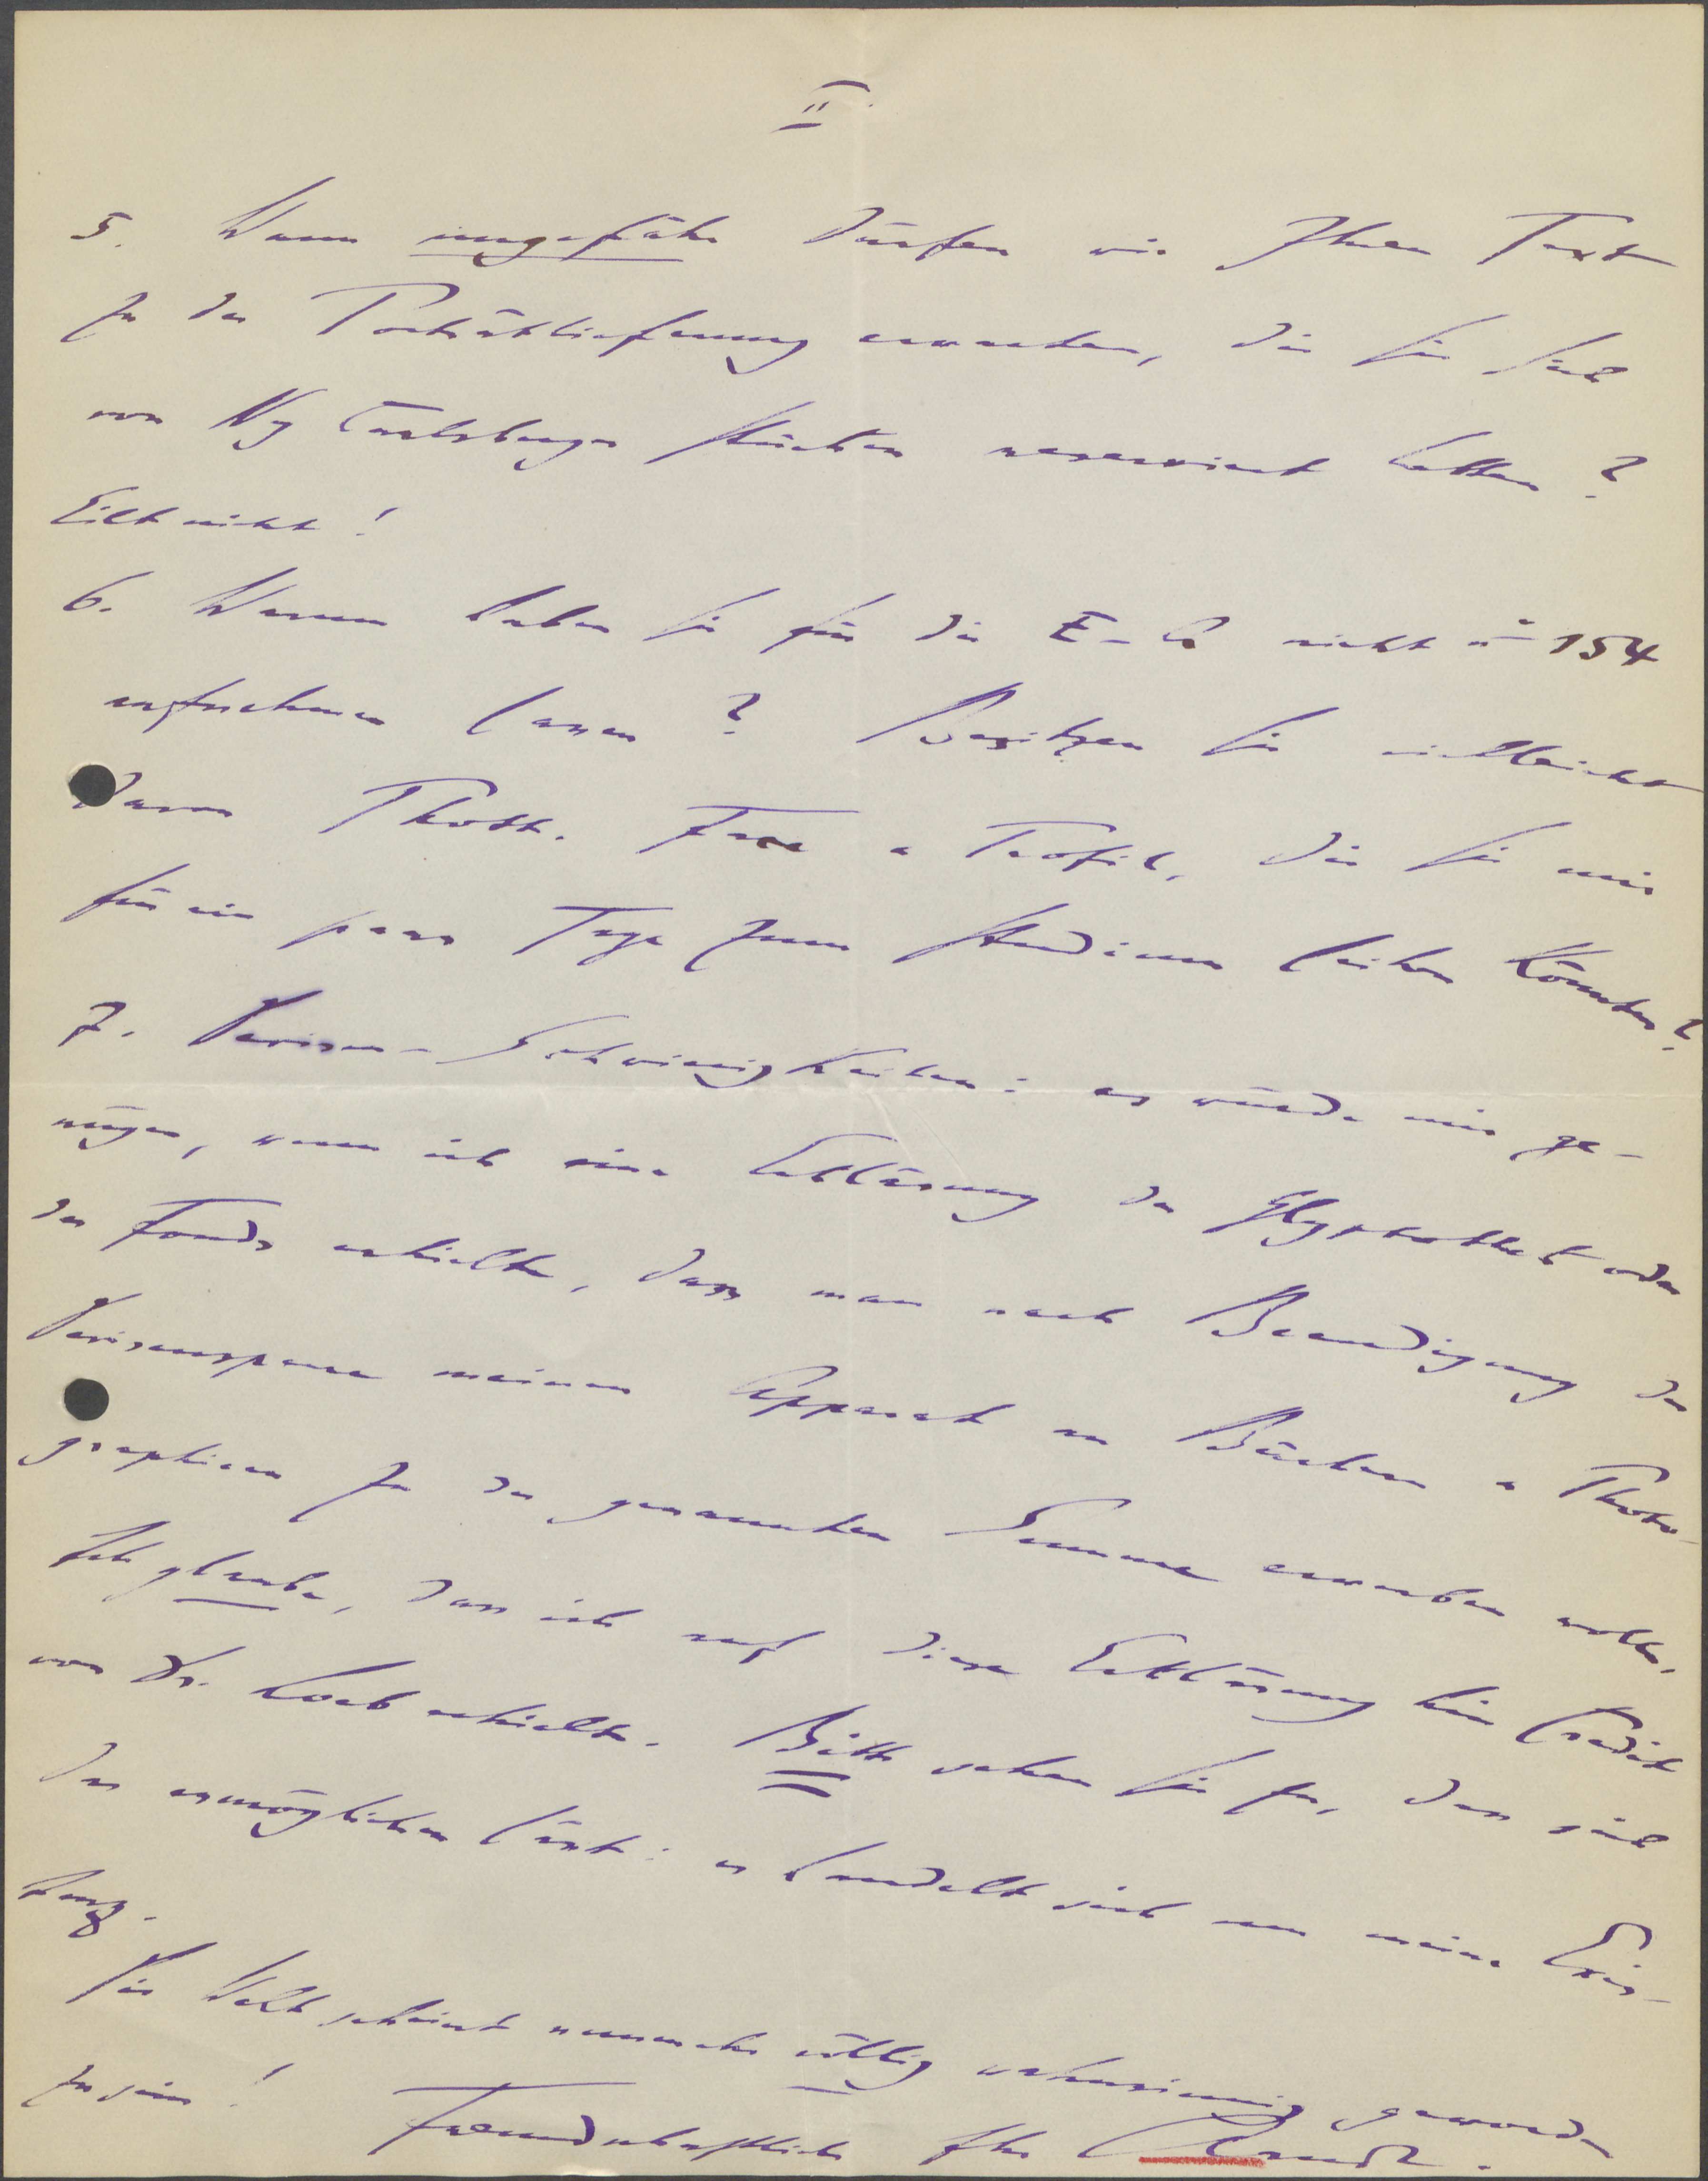 II
5. Wann ungefähr dürfen wir Ihren Text
zu der Porträtlieferung erwarten, die Sie sich
von Ny Carlsberger Stücken reserviert hatten?
Eilt nicht!
6. Warum haben Sie für die E-A nicht n° 154
aufnehmen lassen? Besitzen Sie vielleicht
davon Phott. Face u Profil, die Sie mir
für ein paar Tage zum Studium leihen könnten?
7. Devisen-Schwierigkeiten: es würde mir ge-
nügen, wenn ich eine Erklärung der Glyptothek oder
des Fonds erhielte, dass man nach Beendigung der
Devisensperre meinen Apparat an Büchern u Photo-
graphieen zu der genannten Summe erwerben wolle.
Ich glaube, dass ich auf diese Erklärung hin Credit
von Dr. Loeb erhielte. Bitte sehen Sie zu, dass sich
das ermöglichen lässt: es handelt sich um meine Exis-
tenz.
Die Welt scheint nunmehr völlig wahnsinnig geworden
zu sein! Freundschaftlich Ihr Arndt.